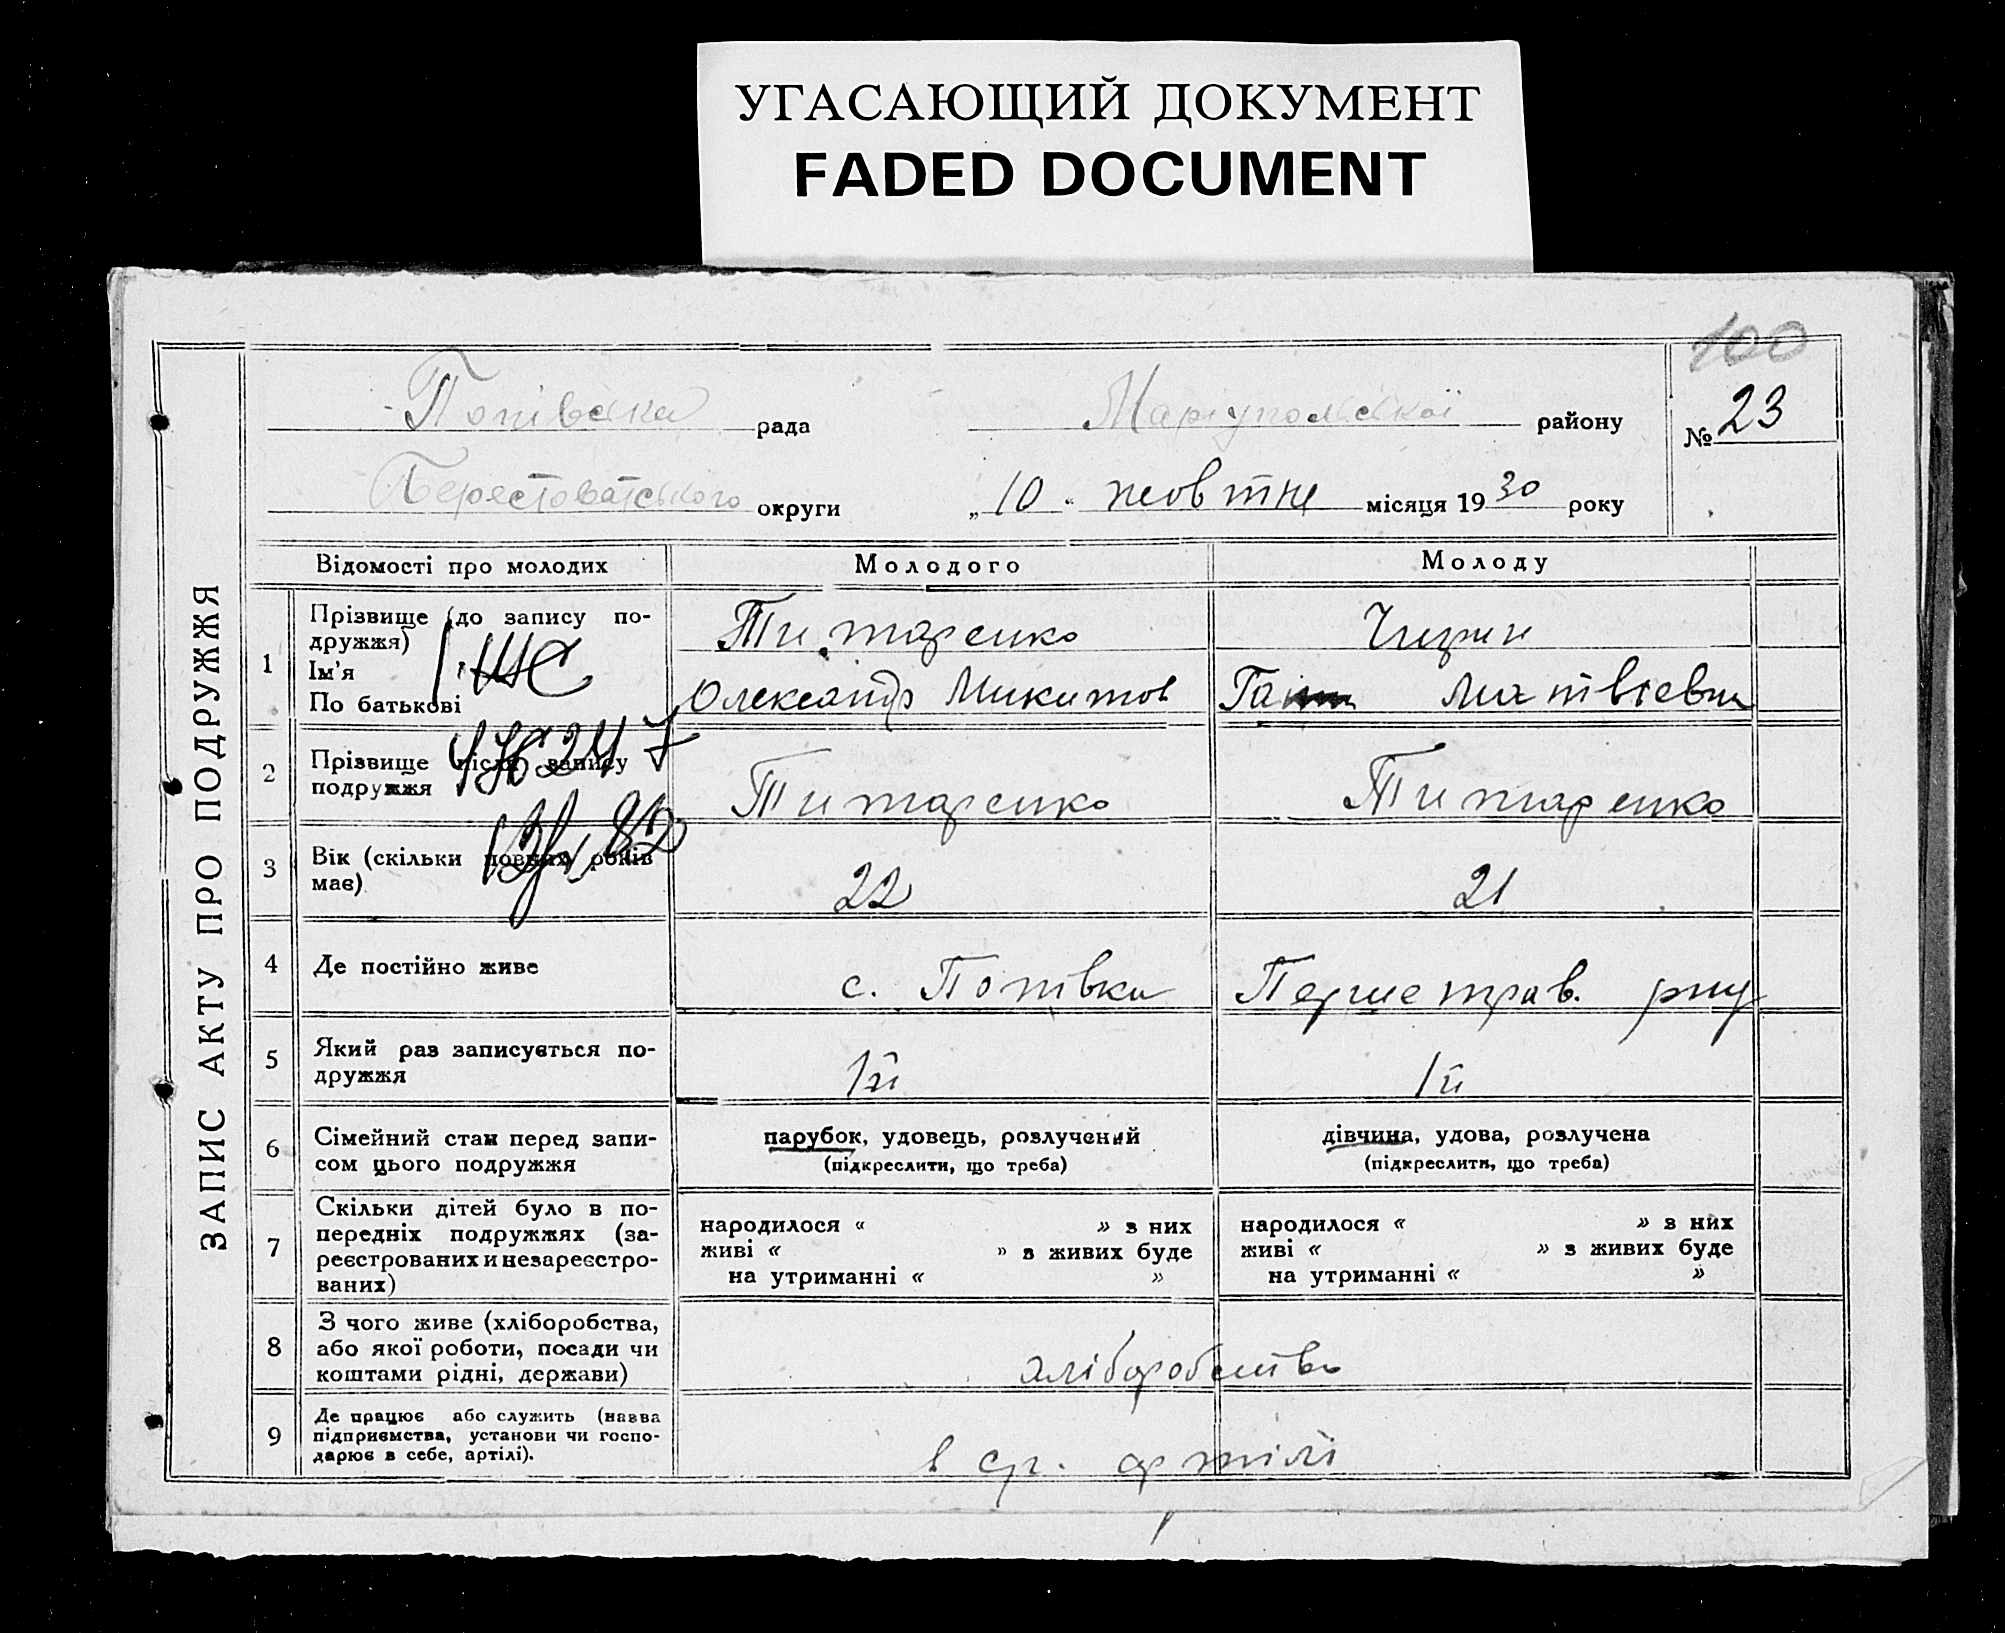 УГАСАЮЩИЙ ДОКУМЕНТ
FADED DOCUMENT
100
Попівська рада Маріупольської району № 23
Берестоватського округи „10“ жовтня місяця 1930 року
ЗАПИС АКТУ ПРО ПОДРУЖЖЯ
Відомості про молодих Молодого Молоду
1 Прізвище (до запису по-
дружжя)
Ім'я
По батькові
Титаренко
Олександр Микитов
Матвієвна
2 Прізвище після запису
подружжя
Титаренко Титаренко
3 Вік (скільки повних років
має)
22 21
4 Де постійно живе с. Попівка Першетрав. рну
5 Який раз записується по-
дружжя
1й 1й
6 Сімейний стан перед запи-
сом цього подружжя
парубок, удовець, розлучений
(підкреслити, що треба)
дівчина, удова, розлучена
(підкреслити, що треба)
7 Скільки дітей було в по-
передніх подружжях (за-
реєстрованих и незареєстро-
ваних)
народилося « » з них
живі « » з живих буде
на утриманні « »
народилося « » з них
живі « » з живих буде
на утриманні « »
8 З чого живе (хліборобства,
або якої роботи, посади чи
коштами рідні, держави)
хліборобство
9 Де працює або служить (назва
підприємства, установи чи госпо-
дарює в себе, артілі).
в с.г. артілі